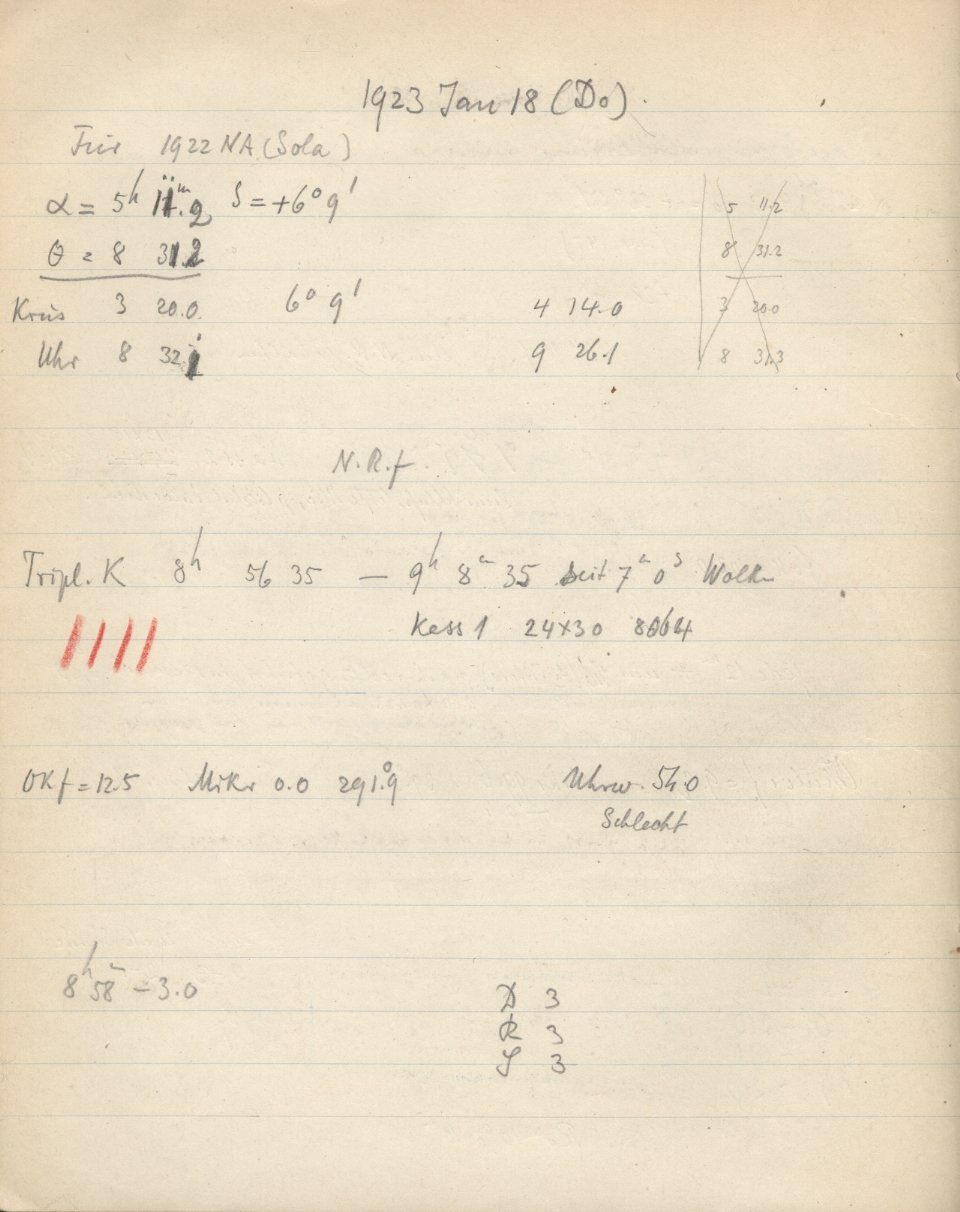 1923 Jan 18 (Do).
Für 1922 NA (Sola)
α = 5h 11m.2 δ = +6° 9'
θ = 8 31.2
Kreis 3 20.0 6° 9' 4 14.0
Uhr 8 32.1 9 26.1
5 11.2
8 31.2
3 20.0
8 31.3
N.R.f.
Tripl. K 8h 56 35 — 9h 8m 35 seit 7m 0s Wolken
Kass 1 24×30 8064
OKf = 12.5 Mikr 0.0 291°.9 Uhrw. 54.0
Schlecht
8h 58m – 3.0
D 3
R 3
S 3